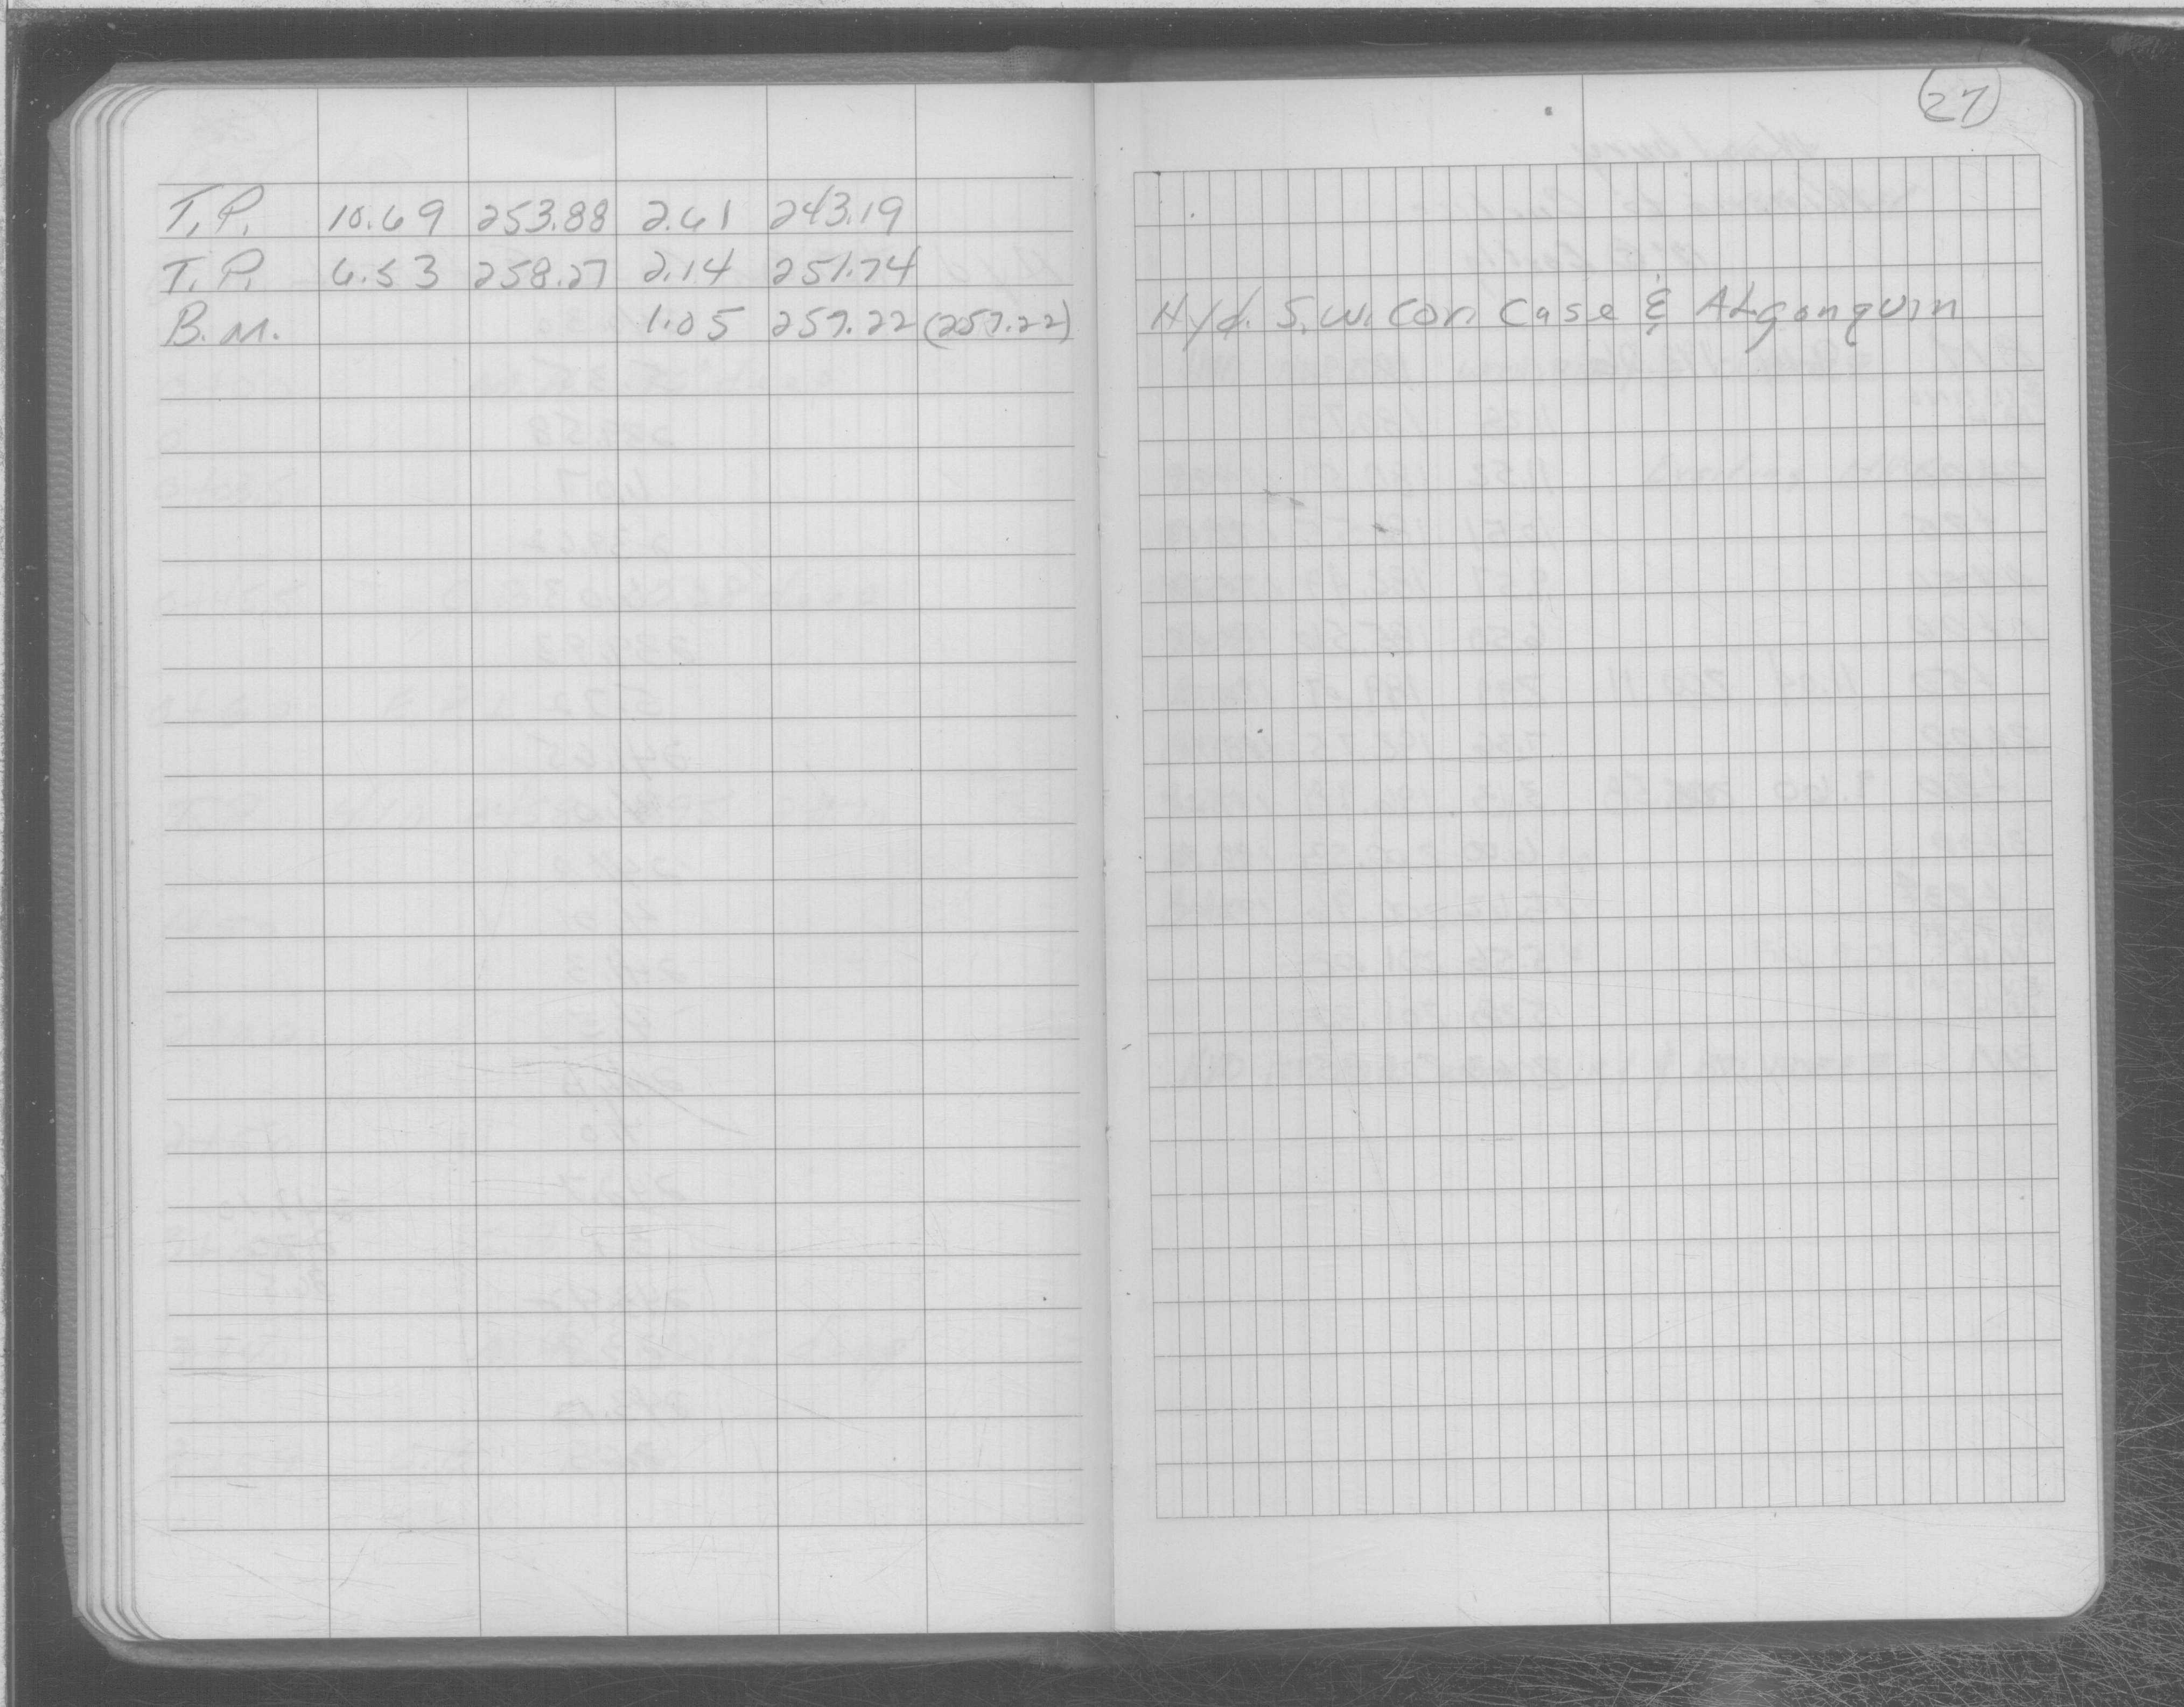 (27)
T.P. 10.69 253.88 2.61 243.19
T.P. 6.53 258.27 2.14 251.74
B.M. 1.05 257.22 (257.22) Hyd. S.W. Cor. Case & ALgonquin